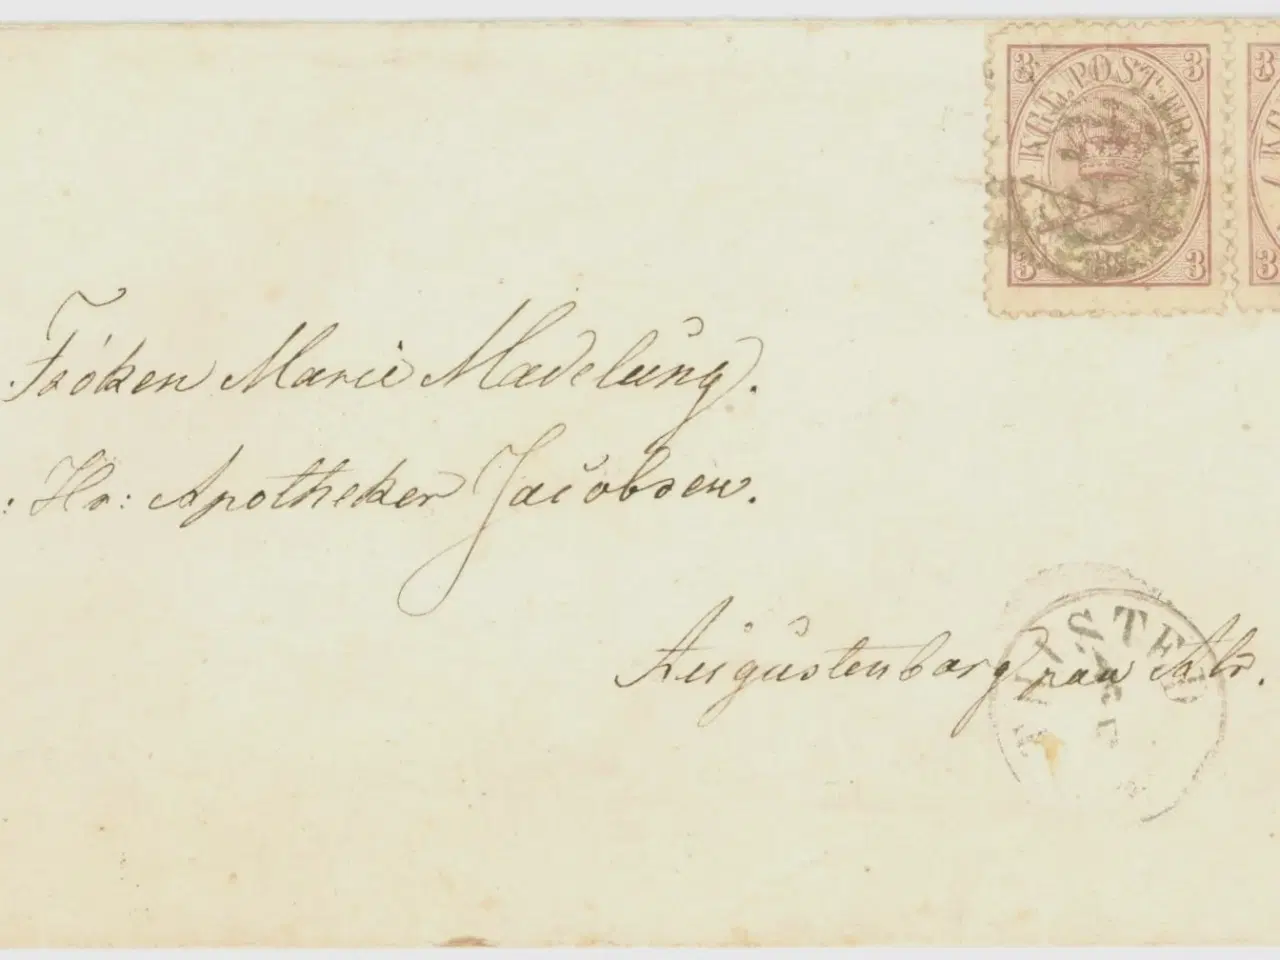 3 KGL. POST. FRM. 3
3 3
3
KG
3
Fröken Marie Madelung.
: Hr: Apotheker Jacobsen.
Augustenborg paa Als.